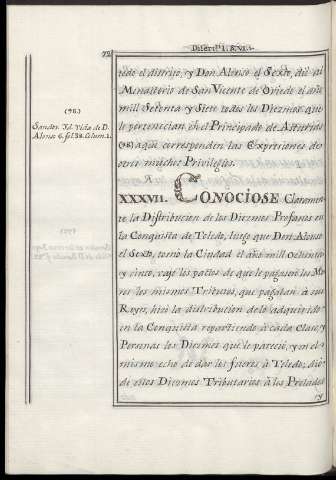 72
Disert.n 1. §.VI.
todo el distrito, y Don Alonso el Sexto, dió al
Monasterio de San Vicente de Oviedo el año
mill Setenta y Siete todos los Diezmos que
le pertenecian, en el Principado de Asturias
(98) a qui corresponden las Expresiones de
otros muchos Privilegios.
(98.)
Sandov. Yd. Vida de D.
Alonso 6. fol. 38. Colum. 1.
XXXVII. CONOCIOSE Claramen
te la Distribucion de los Diezmos Profanos en
la Conquista de Toledo, luego que Don Alonso
el Sexto, tomó la Ciudad el año mill Ochenta
y cinco, cajo los pactos de que le pagasen los Mo
ros los mismos Tributos, que pagaban à sus
Reyes, hizo la distribucion de lo adquirido
en la Conquista repartiendo à cada Clase, y
Personas los Diezmos que le pareció, y en el
mismo echo de dar los fueros à Toledo, dió
de estos Diezmos Tributarios à los Prelados
y